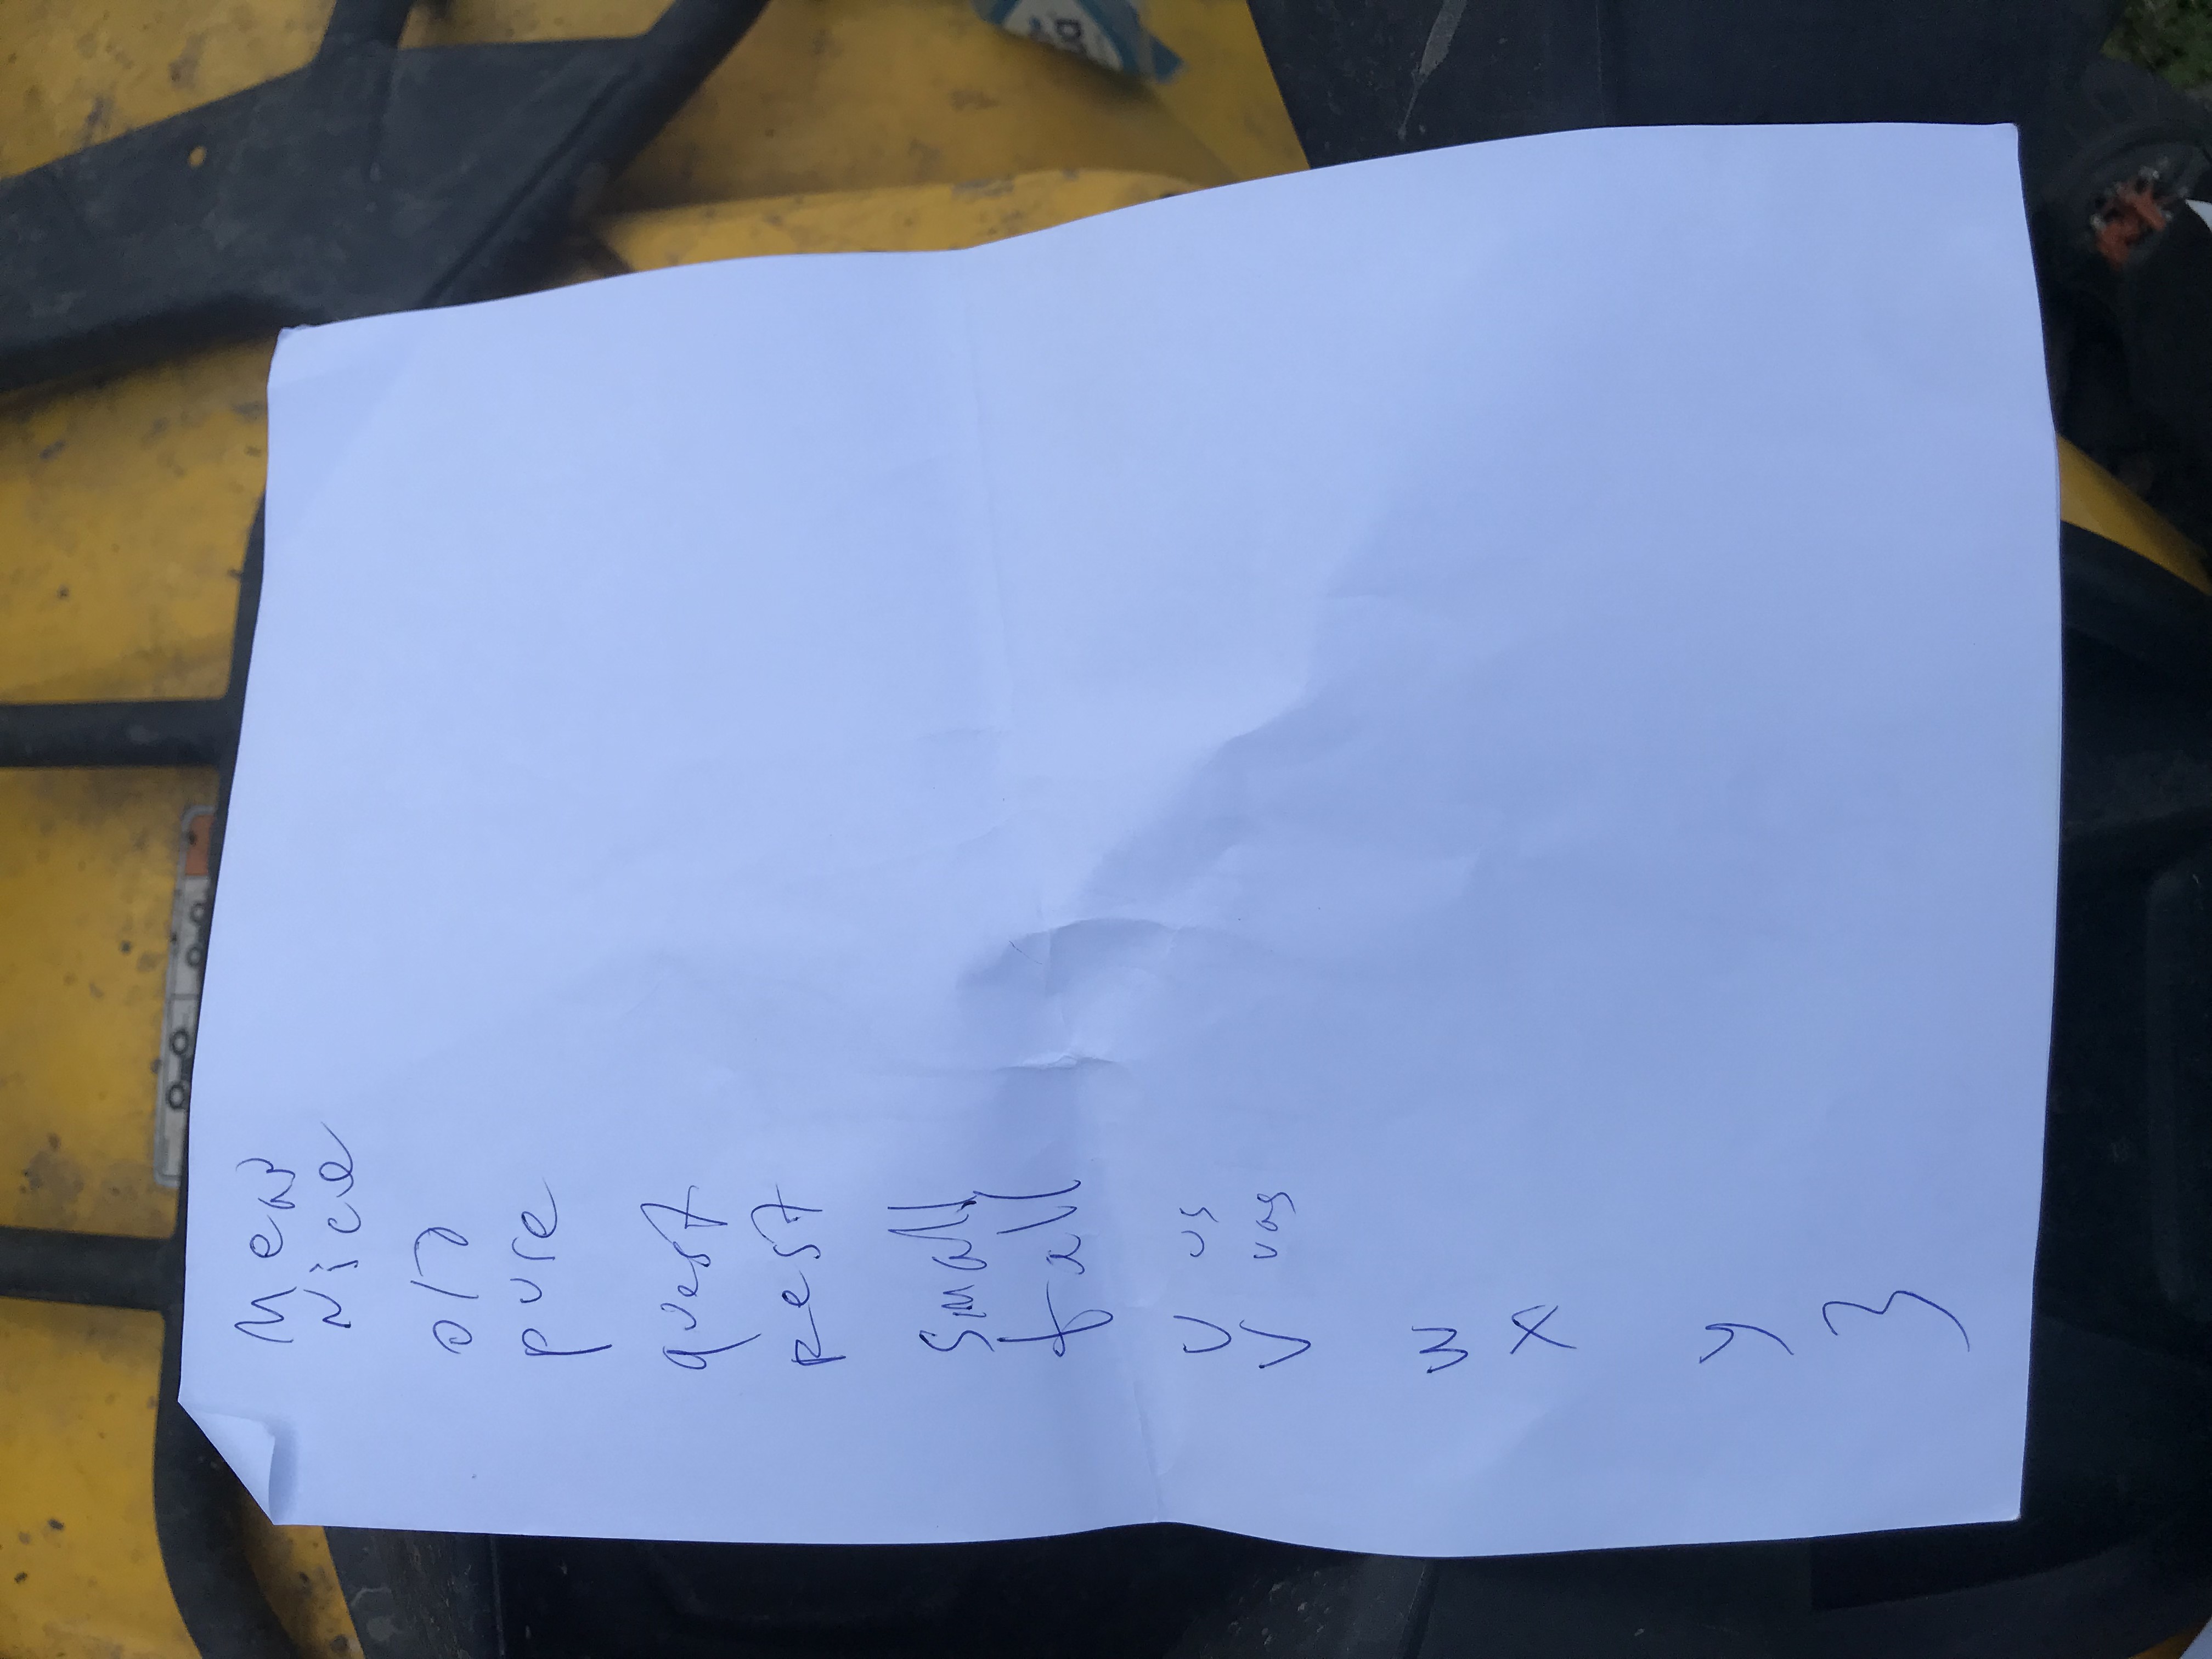 Men
Nice
old
pure
quest
rest
small
tall
U us
V vas
W
X
y
3